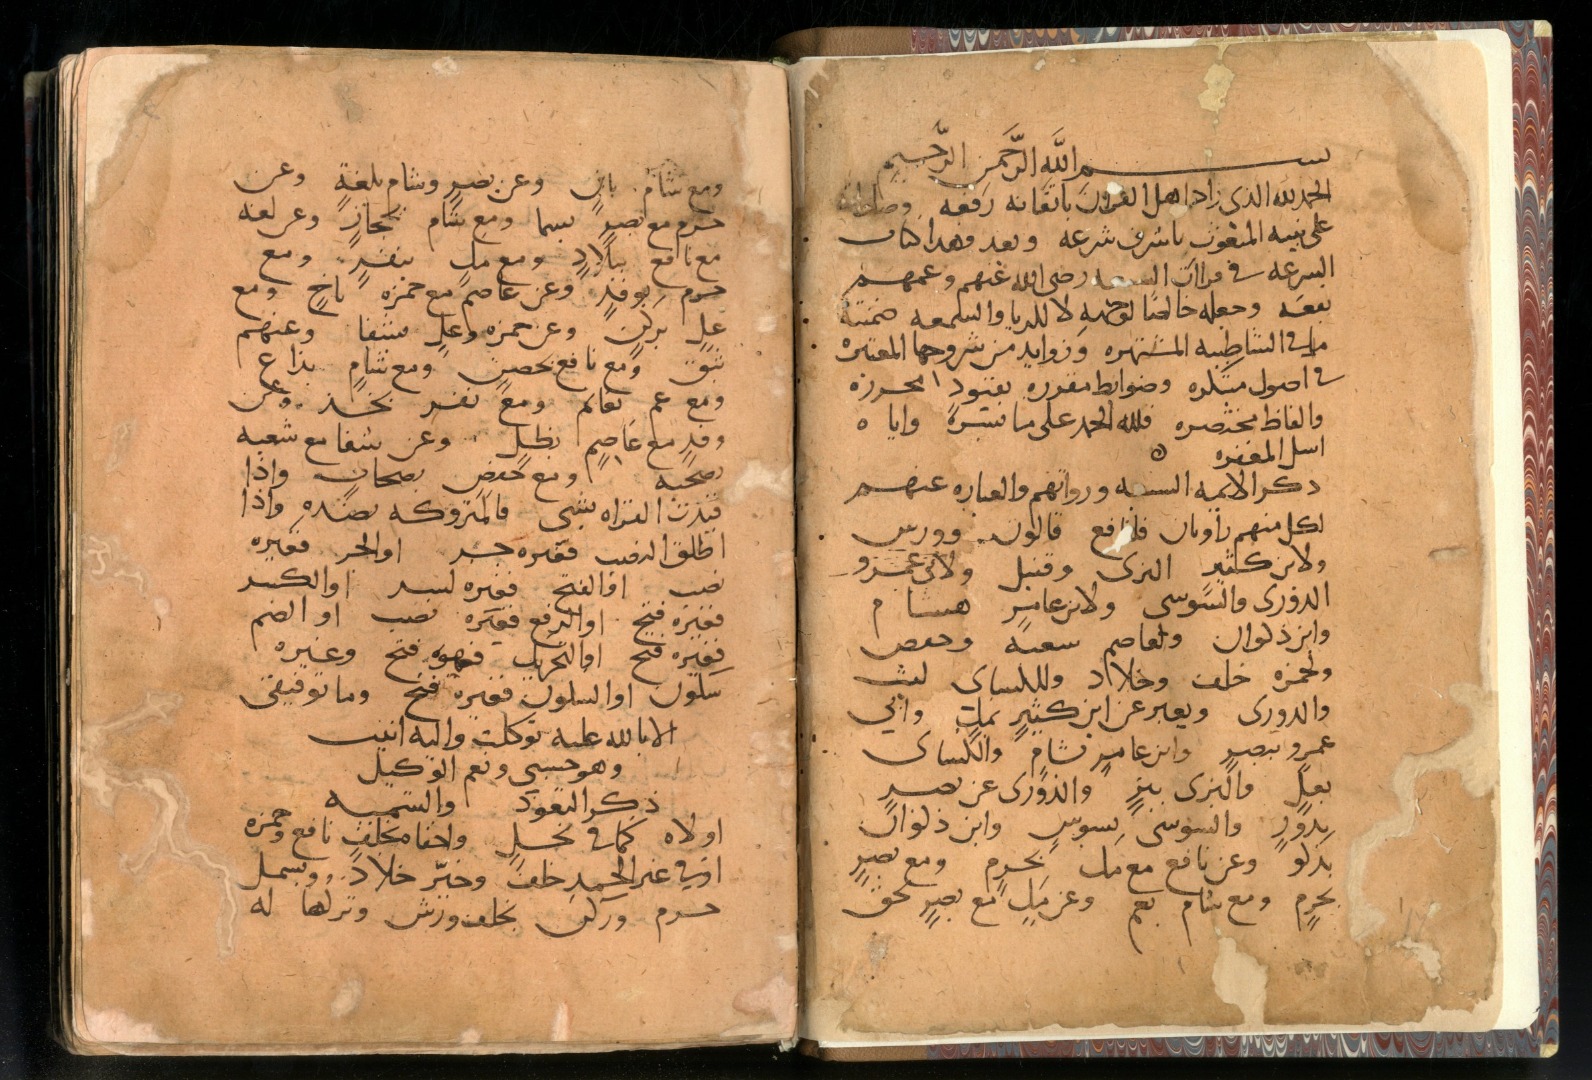 بسم الله الرحمن الرحيم
الحمد لله الذي زاد اهل القران باتقانه رفعه وصلواته
على نبيه المنعوت باشرف شرعه وبعد فهذا كتاب
الشرعه في قراات السبعه رضي الله عنهم وعمهم
بفعه وجعله خالصا لوجهه لا للريا والسمعه ضمنته
ما في الشاطبيه المشتهره وزوايد من شروحها المعتبره
في اصول مبتكره وضوابط مقرره بقيود محرره
والفاظ مختصره فلله الحمد على ما يسره واياه
اسل المغفره
ذكر الايمه السبعه ورواتهم والعباره عنهم
لكل منهم راويان فلنافع قالون وورش
ولابن كثير البزي وقنبل ولابي عمرو
الدوري والسوسي ولابن عامر هشام
وابن ذكوان ولعاصم شعبه وحفص
ولحمزه خلف وخلاد وللكساي ليث
والدوري ويعبر عن ابن كثير بمك وابي
عمرو ببصر وابن عامر بشام والكساي
بعل والبزي ببز والدوري عن بصر
بدور والسوسي بسوس وابن ذكوان
بذكو وعن نافع مع مك بحرم ومع بصر
بحرم ومع شام بعم وعن مك مع بصر بحق
ومع شام وعن بصر وشام بلغة وعن
حرم مع بصر بسما ومع شام بحجاز وعن لغة
مع نافع ببلاد ومع مك بنفر ومع
حرم بوفد وعن عاصم مع حمزه ومع
عل بركن وعن حمزه وعل بشفا وعنهم
بثق ومع نافع بحصن ومع شام بذاع
ومع عم بعالم ومع نفر بخذ وعن
وفد مع عاصم بظل وعن شفا مع شعبه
بصحبه ومع حفص بصحاب واذا
قيدت القراه بشي فالمتروكه بضده واذا
اطلق الرفع فغيره جر او الجر فغيره
نصب او الفتح فغيره كسر او الكسر
فغيره فتح او الرفع فغيره نصب او الضم
فغيره فتح او التحريك فهو فتح وغيره
سكون او السكون فغيره فتح وما توفيقي
الا بالله عليه توكلت واليه انيب
وهو حسبي ونعم الوكيل
ذكر التعوذ والتسميه
اولاه كما في نحل واخفا مخلف نافع وحمزه
او في غير الحمد خلف وخير خلاد وبسمل
حرم وركن بخلف ورش وتركها له